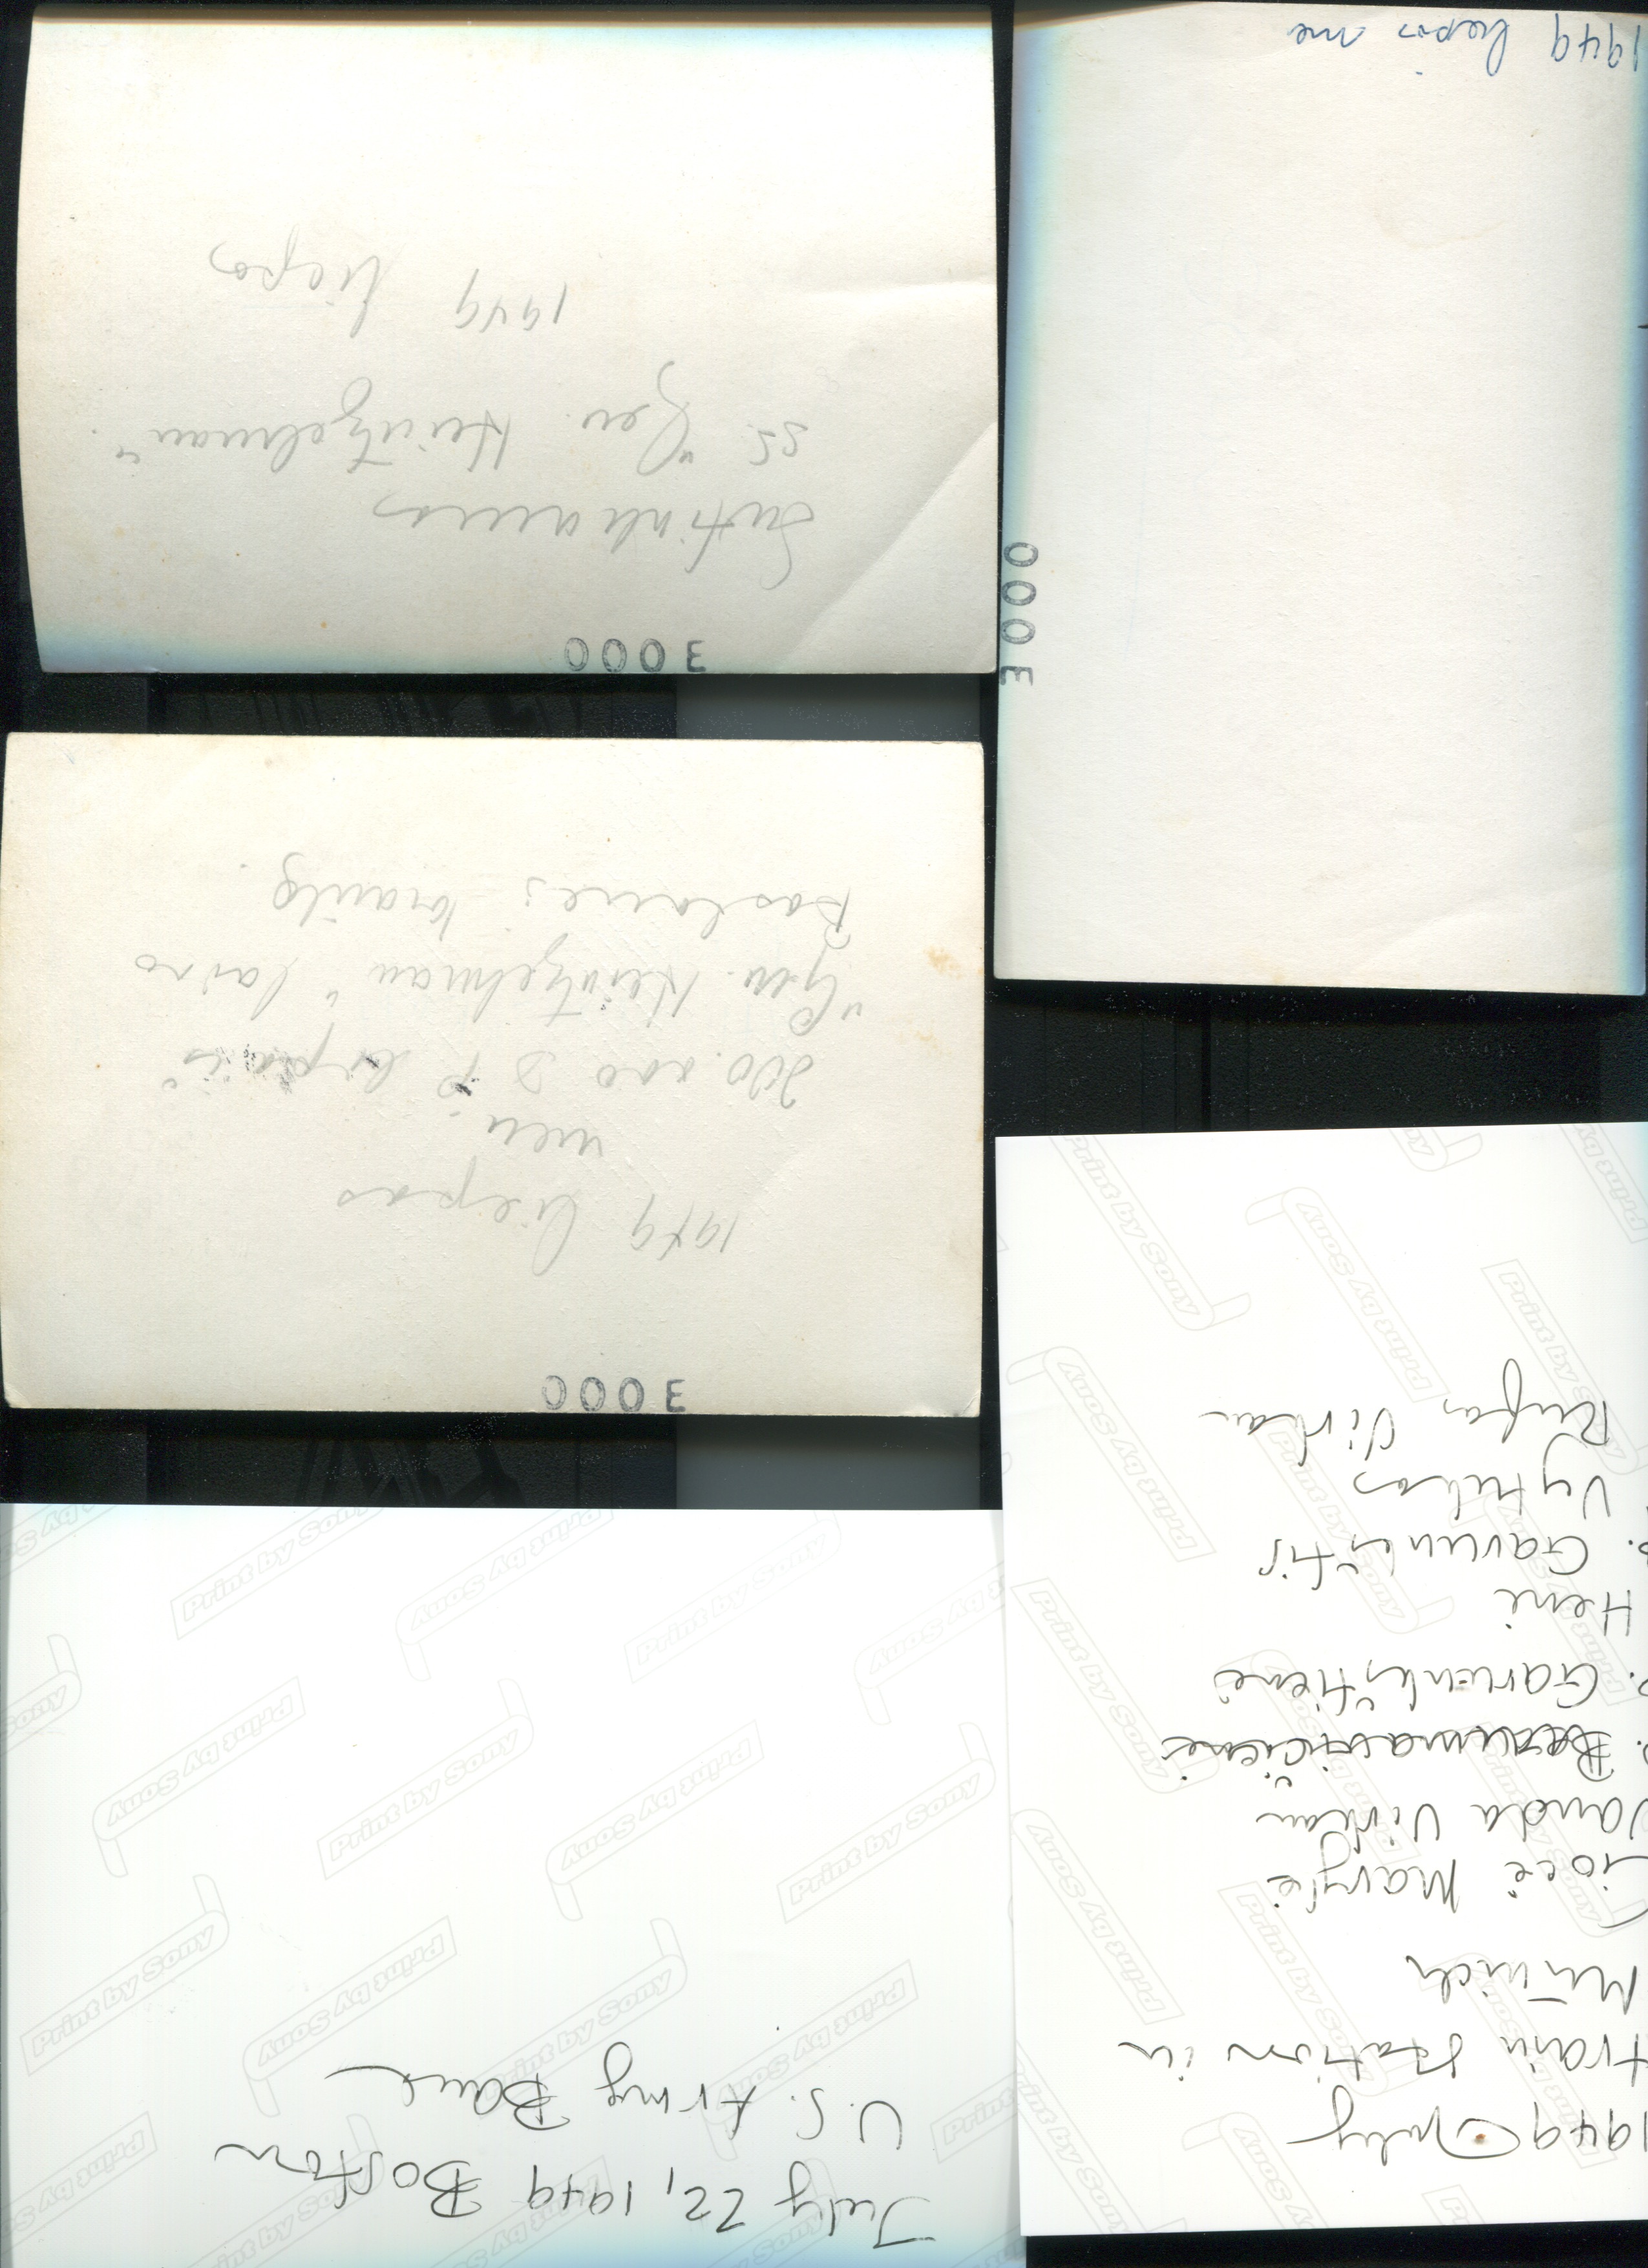 1949 liepos me
Sutinkamos
SS. "Gen. Heintzelman".
1949 liepos
3000
3000
1949 liepos
mėn.
200.000 DP
"Gen. Heintzelman" laivo
Bostone;
3000
July 22, 1949 Boston
U.S. Army Base
1949 July
train station in
Münich
Giocė Marytė
Vanda Virkau
Garunkštienė
Henė
Garunkštis
Vytukas
Rufas Virkau
Print by Sony